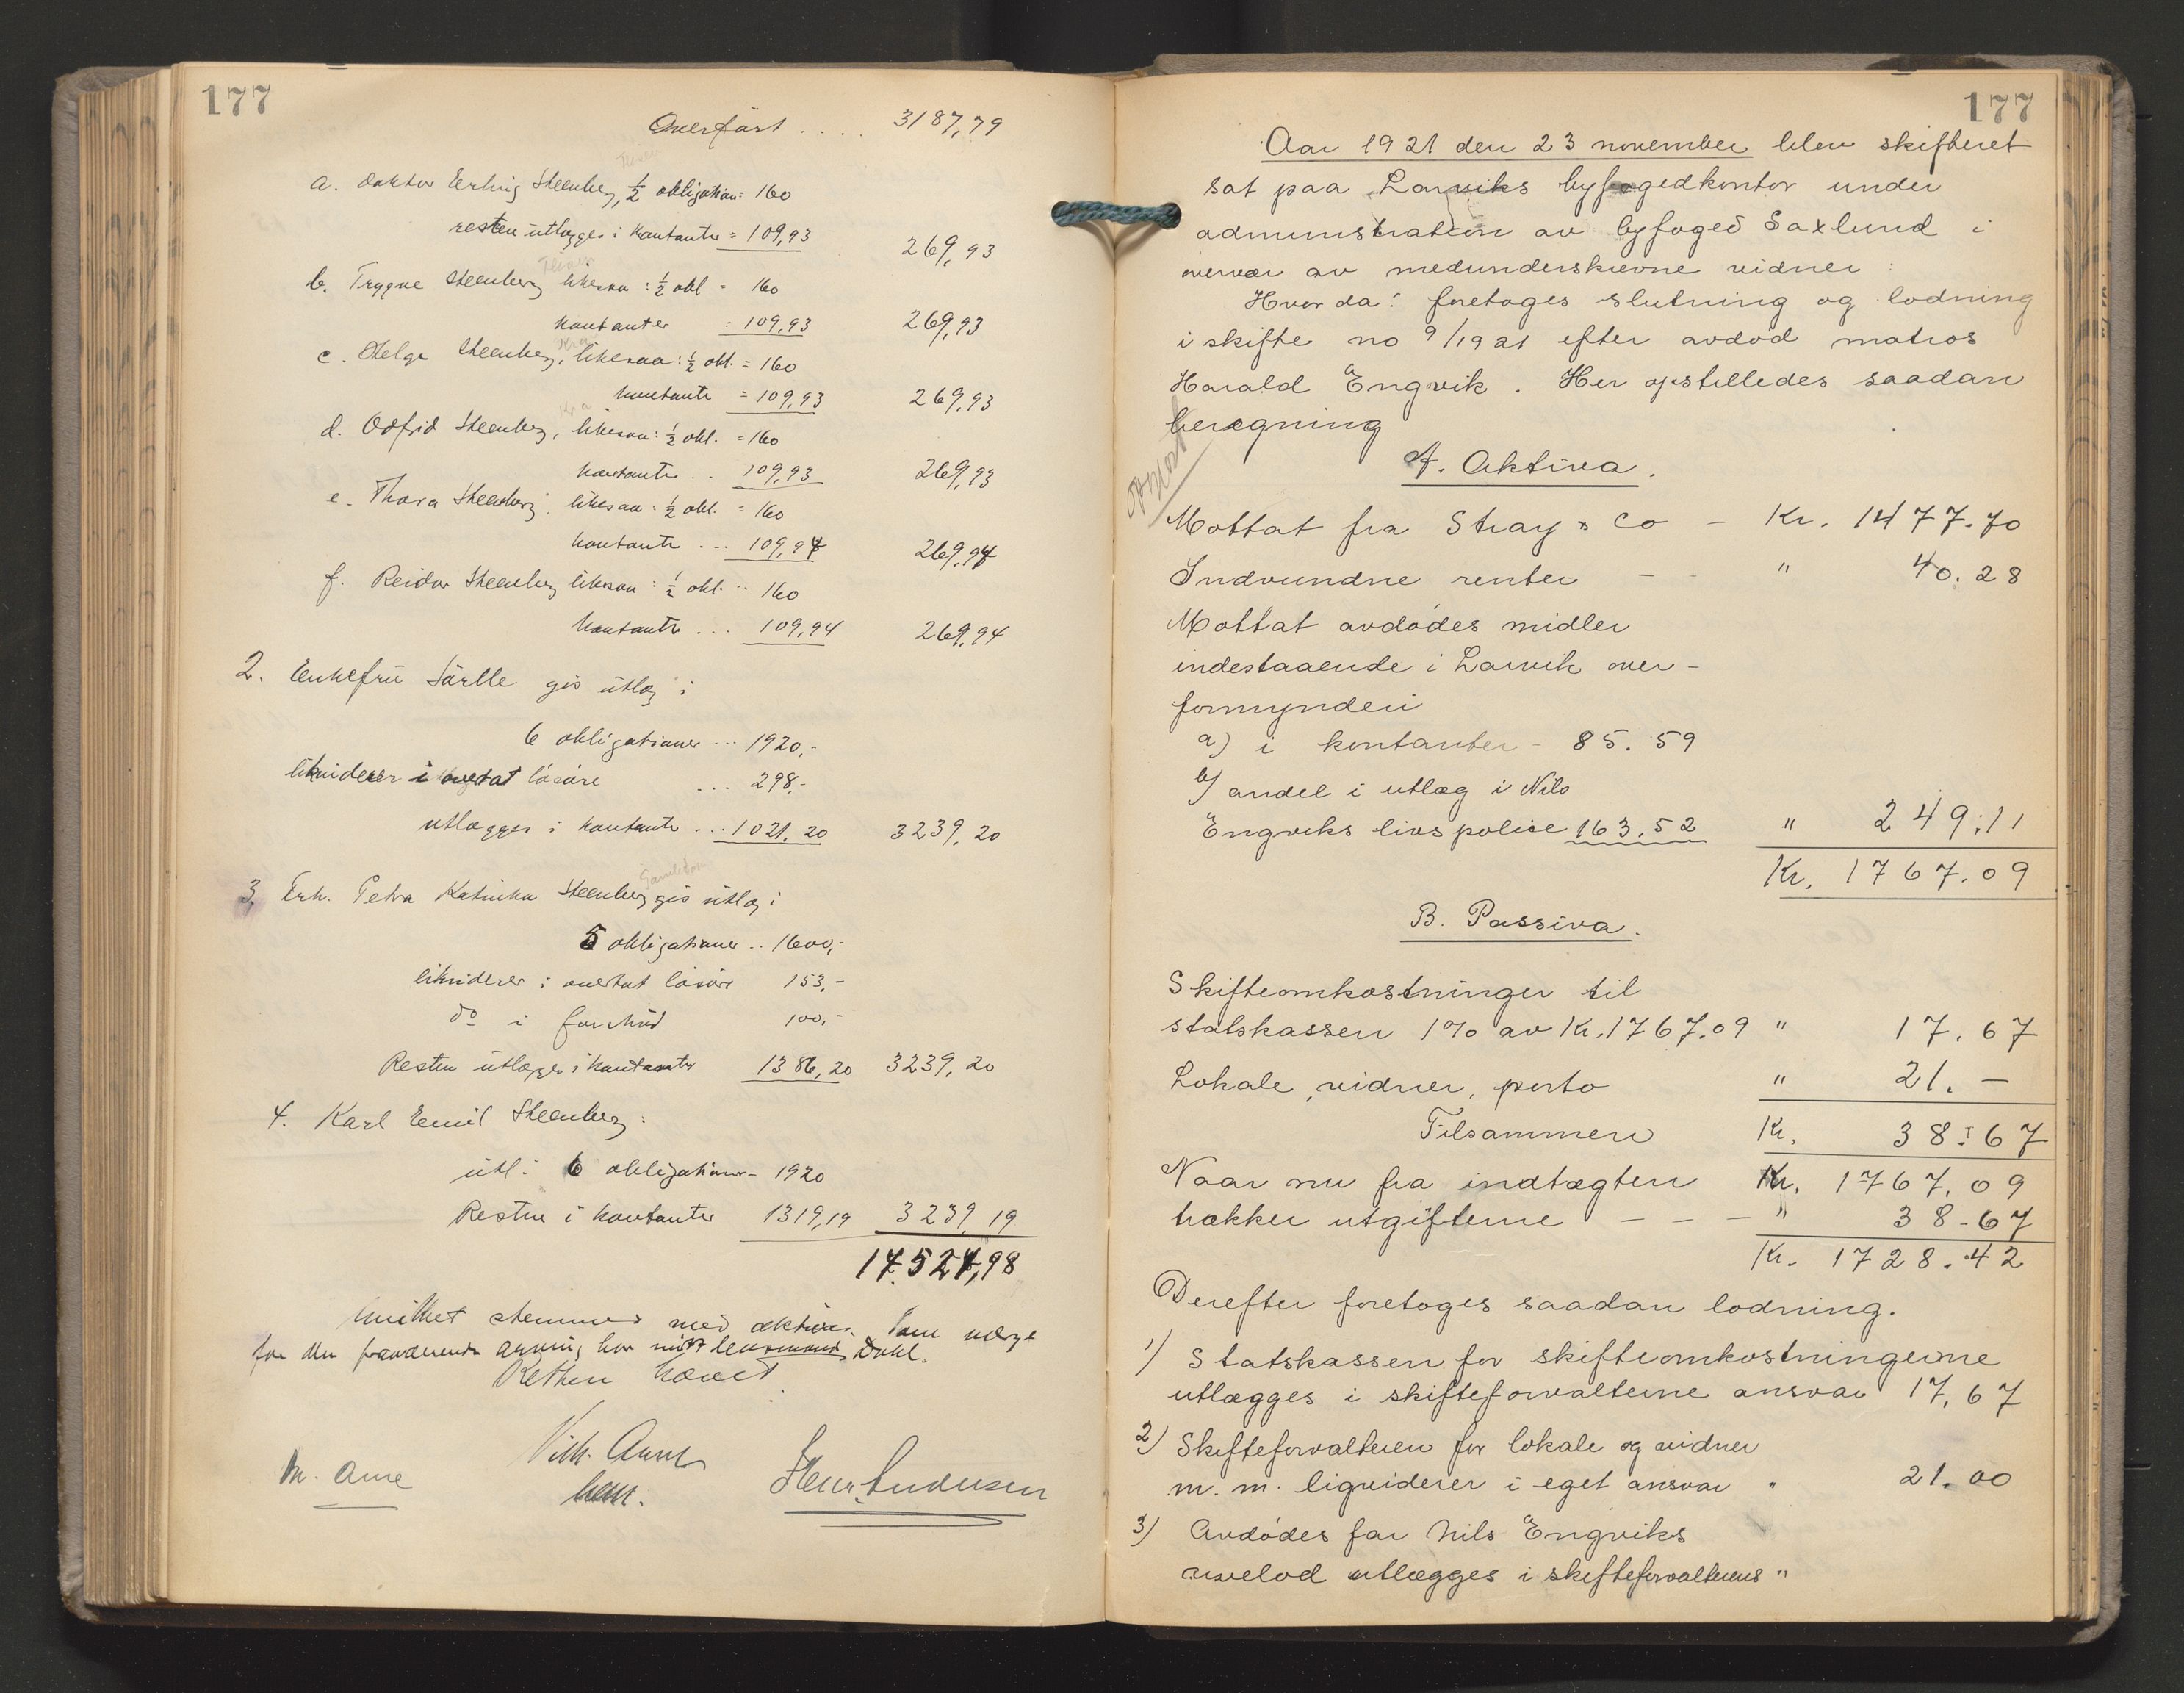 177
Overført .... 3187,79
a. doktor Erling Steenberg, ½ obligation = 160
resten utlægges i kontanter = 109,93 269,93
b. Trygve Steenberg likesaa: ½ obl = 160
kontanter = 109,93 269,93
c. Helge Steenberg, likesaa: ½ obl. = 160
kontante = 109,93 269,93
d. Odfrid Steenberg, likesaa: ½ obl. = 160
kontante .. 109,93 269,93
e. Thora Steenberg, likesaa: ½ obl. = 160
kontante ... 109,94 269,94
f. Reidar Steenberg likesaa: ½ obl. .. 160
kontante ... 109,94 269,94
2. Enkefru gis utlæg i
6 obligationer ... 1920,-
likviderer i overtat løsøre ... 298,-
utlægges i kontante ... 1021,20 3239,20
3, Enk. Petra Katinka Steenberg gis utlæg i
5 obligationer .. 1600,-
likviderer i overtat løsøre 153,-
do i forskud 100,-
Resten utlægges i kontanter 1386,20 3239,20
4. Karl Emil Steenberg:
utl. 6 obligationer - 1920
Resten i kontanter 1319,19 3239,19
14.524,98
hvilket stemmer med aktiva. Som værge
for den fraværende arving har møtt lensmand Dahl.
Retten hævet
M. Arne
Henr. Andersen
177
Aar 1921 den 23 november blev skifteret
sat paa Larviks byfogedkontor under
administration av byfoged Saxlund i
overvær av medunderskrevne vidner:
Hvor da: foretoges slutning og lodning
i skifte no 9/1921 efter avdød matros
Harald Engvik. Her opstilledes saadan
beregning
A. Aktiva.
Mottat fra Stray & Co - Kr. 1477.70
Indvundne renter - - " 40.28
Mottat avdødes midler
indestaaende i Larvik over-
formynderi
a) i kontanter - 85.59
b) andel i utlæg i Nils
Engviks livspolice 163.52 " 249.11
Kr. 1767.09
B. Passiva.
Skifteomkostninger til
statskassen 1% av Kr. 1767.09 " 17.67
Lokale, vidner, porto " 21. -
Tilsammen Kr. 38.67
Naar nu fra indtægten Kr. 1767.09
trækker utgifterne - - - " 38-67
Kr. 1728.42
Derefter foretoges saadan lodning.
1) Statskassen for skifteomkostningerne
utlægges i skifteforvalterne ansvar 17.67
2) Skifteforvalteren for lokale og vidner
m. m. liqviderer i eget ansvar " 21.00
3) Avdødes far Nils Engviks
arvelod utlægges i skifteforvalterens "